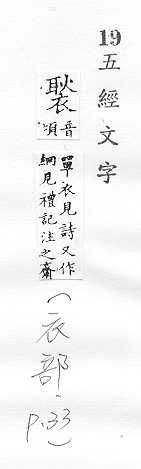 19五經文字
褧
音
頌
單衣見詩又作
絅見禮記注之齋
(衣部·
P.33)